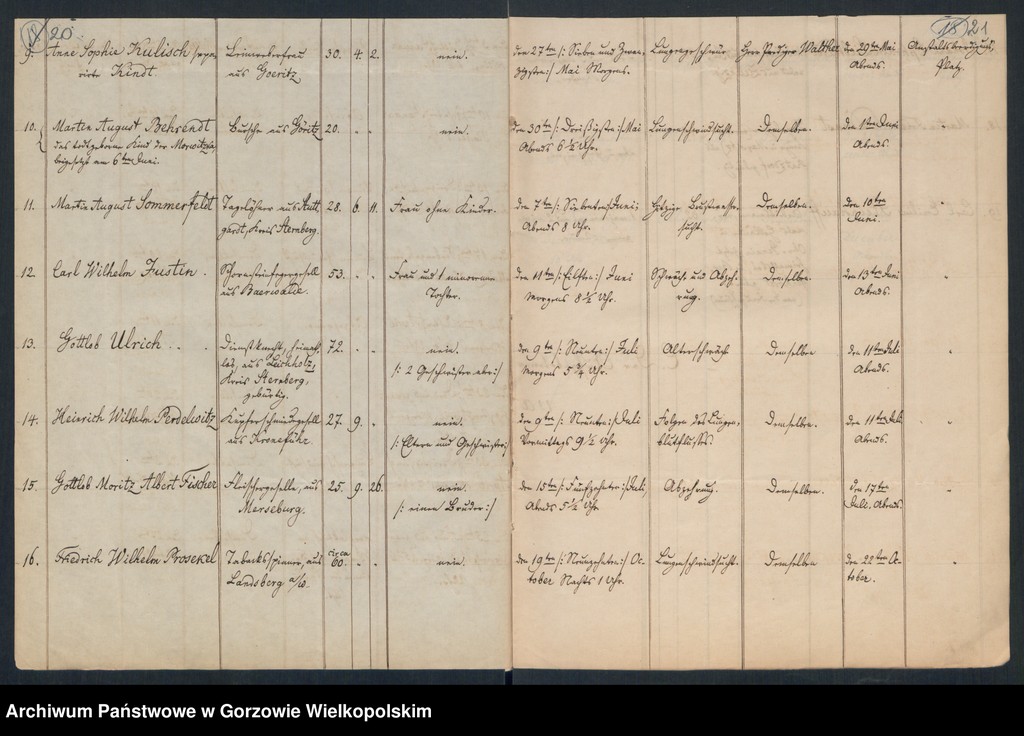 20
18 21
9. Anne Sophie Kulisch sepa-
rirte Kindt.
aus Goeritz
30. 4. 2.
nein.
den 27ten /: Sieben und Zwan-
zigsten :/ Mai Morgens.
Lungengeschwür
Herr Prediger Walther
den 29ten Mai
Abends.
Anstaltsbeerdigungs
Platz.
10. Marten August Behrendt
das todtgeborene Kind der
beigesetzt am 6ten Juni.
aus Göritz
20. - -
nein.
den 30ten /: Dreißigsten :/ Mai
Abends 6 1/2 Uhr.
Lungenschwindsucht.
Demselben.
den 1ten Juni
Abends.
11. Martin August Sommerfeldt
Tagelöhner aus
Kreis Sternberg.
28. 6. 11.
Frau ohne Kinder.
den 7ten /: Siebenten :/ Juni
Abends 8 Uhr.
Hitzige Brustwasser-
sucht.
Demselben.
den 10ten
Juni.
12. Carl Wilhelm Justin.
Schornsteinfegergesell
aus Baerwalde.
53. - -
Frau und 1 minorenne
Tochter.
den 11ten /: Eilften :/ Juni
Morgens 8 1/2 Uhr.
Schwäche und Abzeh-
rung.
Demselben.
den 13ten Juni
Abends.
13. Gottlob Ulrich . .
Dienstknecht, heimath-
los, aus Buchholz,
Kreis Sternberg,
gebürtig.
72. - -
nein.
/: 2 Geschwister aber :/
den 9ten /: Neunten :/ Juli
Morgens 5 3/4 Uhr.
Altersschwäche
Demselben
den 11ten Juli
Abends.
14. Heinrich Wilhelm Perdelwitz
Kupferschmiedegesell
aus
27. 9. -
nein.
/: Eltern und Geschwister :/
den 9ten /: Neunten :/ Juli
Vormittags 9 1/2 Uhr.
Folgen des Lungen-
blutflusses.
Demselben.
den 11ten Juli
Abends.
15. Gottlob Moritz Albert Fischer
Fleischergeselle, aus
Merseburg.
25. 9. 26.
nein.
/: einen Bruder :/
den 15ten /: Fünfzehnten :/ Juli,
Abends 5 1/2 Uhr
Abzehrung.
Demselben.
den 17ten
Juli, Abends.
16. Friedrich Wilhelm Prosekel
Tabacksspinner, aus
Landsberg a/w.
circa
60. - -
nein.
den 19ten /: Neunzehnten :/ Oc-
tober Nachts 1 Uhr.
Lungenschwindsucht.
Demselben
den 22ten Oc-
tober.
Archiwum Państwowe w Gorzowie Wielkopolskim